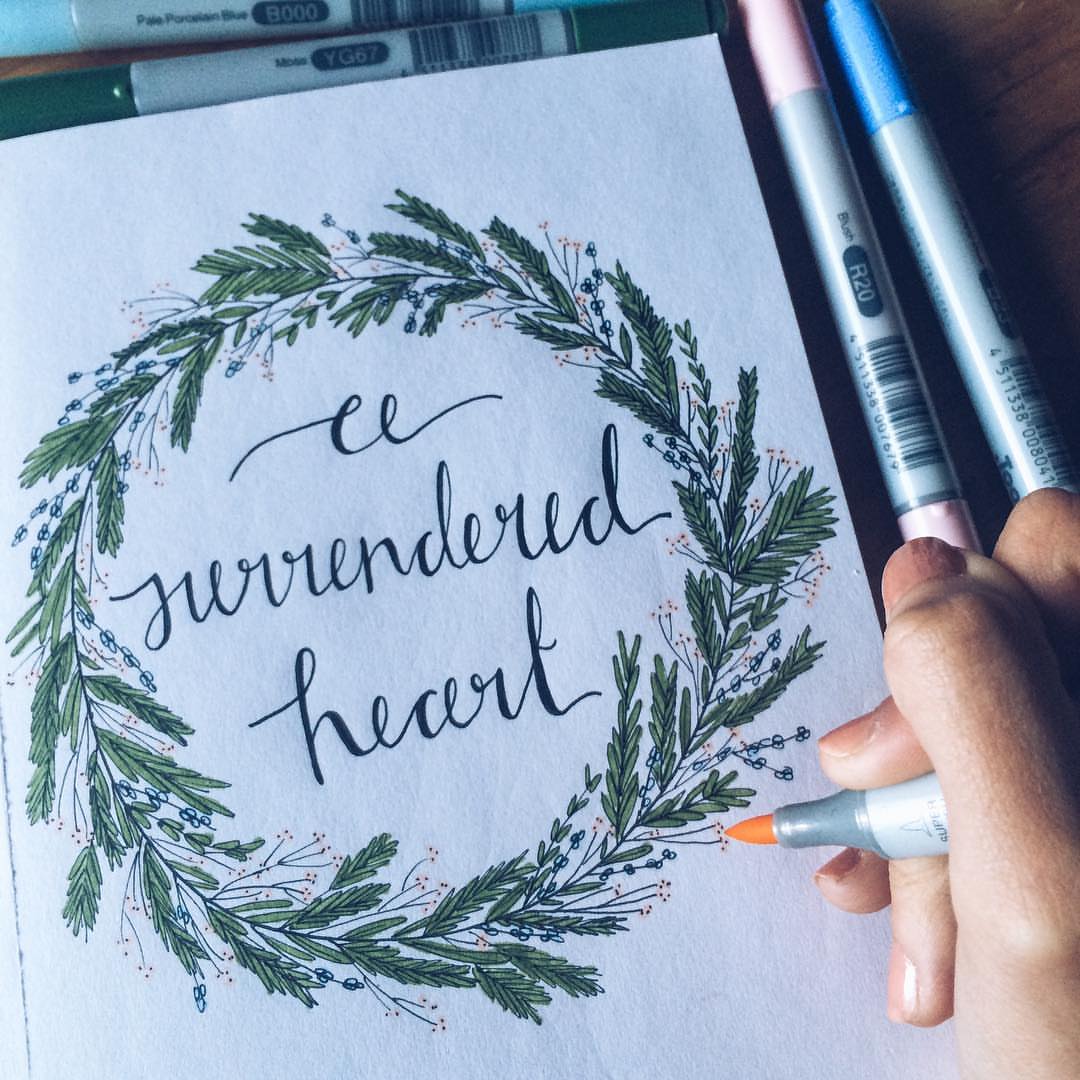 Pale Porcelain Blue B000
Moss YG67
a
surrendered
heart
Blush R20
4 511338 007679
4 511338 00804
SUPER